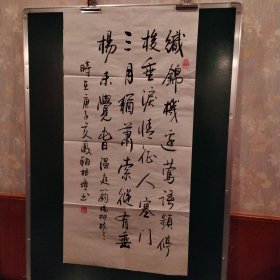 織錦機邊鶯語頻停
梭垂淚憶征人塞門
三月猶蕭索縱有垂
楊未覺春溫庭筠楊柳枝
時在庚子之夏